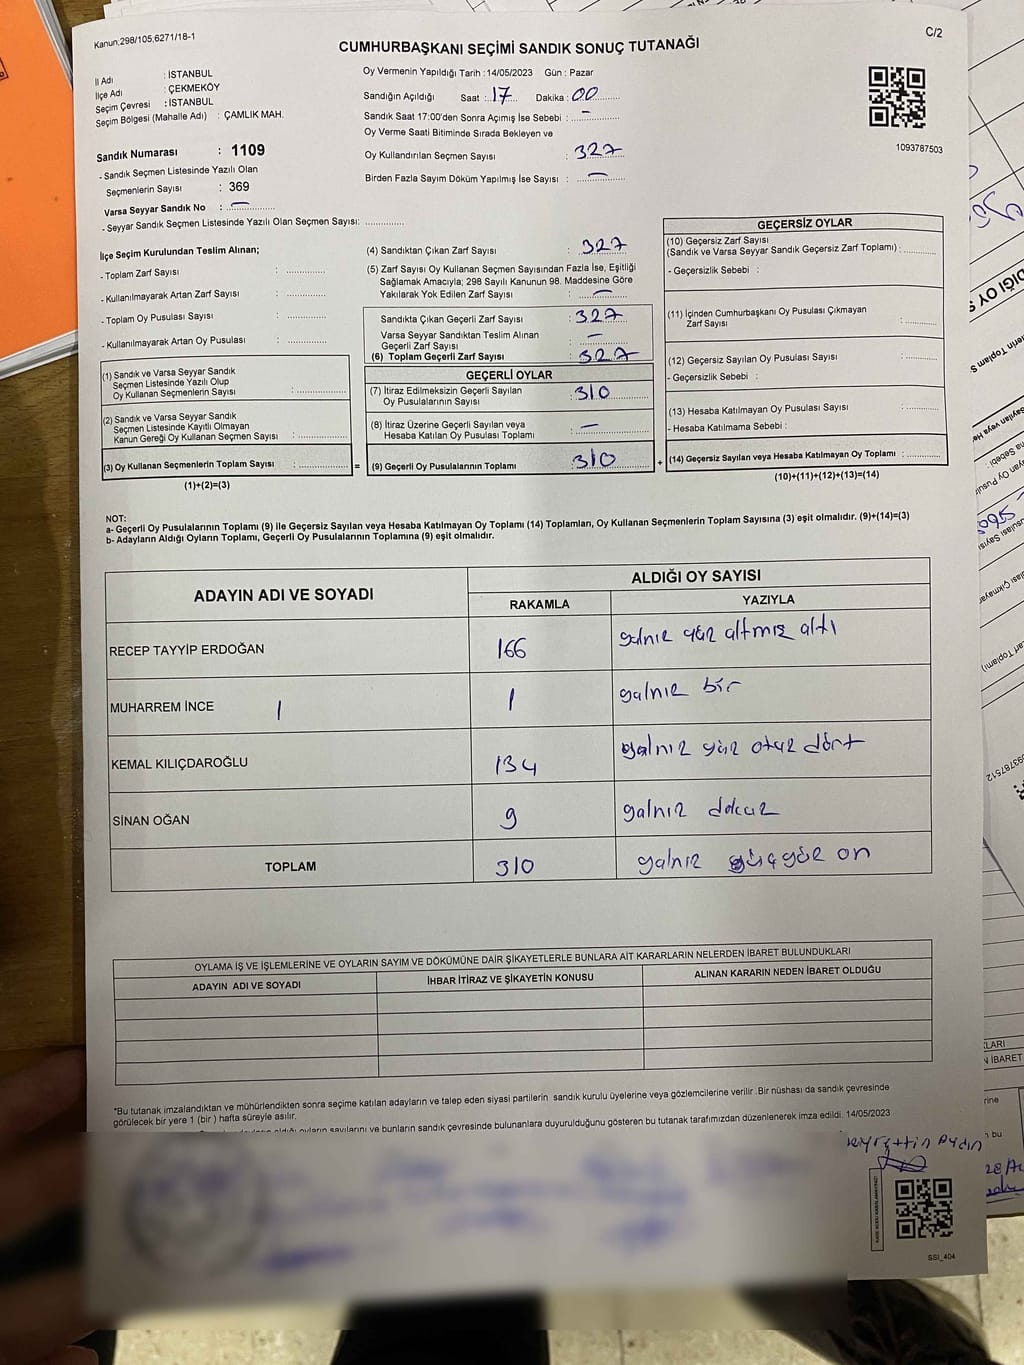 Kanun;298/105,6271/18-1
C/2
CUMHURBAŞKANI SEÇİMİ SANDIK SONUÇ TUTANAĞI
İl Adı : İSTANBUL
İlçe Adı : ÇEKMEKÖY
Seçim Çevresi : İSTANBUL
Seçim Bölgesi (Mahalle Adı) : ÇAMLIK MAH.
Sandık Numarası : 1109
- Sandık Seçmen Listesinde Yazılı Olan
Seçmenlerin Sayısı : 369
Varsa Seyyar Sandık No : —
- Seyyar Sandık Seçmen Listesinde Yazılı Olan Seçmen Sayısı: ..............
Oy Vermenin Yapıldığı Tarih : 14/05/2023 Gün : Pazar
Sandığın Açıldığı Saat : 17 Dakika : 00
Sandık Saat 17:00'den Sonra Açımış İse Sebebi : —
Oy Verme Saati Bitiminde Sırada Bekleyen ve
Oy Kullandırılan Seçmen Sayısı : 327
Birden Fazla Sayım Döküm Yapılmış İse Sayısı : —
1093787503
İlçe Seçim Kurulundan Teslim Alınan;
- Toplam Zarf Sayısı : ..............
- Kullanılmayarak Artan Zarf Sayısı : ..............
- Toplam Oy Pusulası Sayısı : ..............
- Kullanılmayarak Artan Oy Pusulası : ..............
(1) Sandık ve Varsa Seyyar Sandık
Seçmen Listesinde Yazılı Olup
Oy Kullanan Seçmenlerin Sayısı : ..............
(2) Sandık ve Varsa Seyyar Sandık
Seçmen Listesinde Kayıtlı Olmayan
Kanun Gereği Oy Kullanan Seçmen Sayısı : ..............
(3) Oy Kullanan Seçmenlerin Toplam Sayısı : .............. =
(1)+(2)=(3)
(4) Sandıktan Çıkan Zarf Sayısı : 327
(5) Zarf Sayısı Oy Kullanan Seçmen Sayısından Fazla İse, Eşitliği
Sağlamak Amacıyla; 298 Sayılı Kanunun 98. Maddesine Göre
Yakılarak Yok Edilen Zarf Sayısı : —
Sandıkta Çıkan Geçerli Zarf Sayısı : 327
Varsa Seyyar Sandıktan Teslim Alınan
Geçerli Zarf Sayısı : —
(6) Toplam Geçerli Zarf Sayısı : 327
GEÇERLİ OYLAR
(7) İtiraz Edilmeksizin Geçerli Sayılan
Oy Pusulalarının Sayısı : 310
(8) İtiraz Üzerine Geçerli Sayılan veya
Hesaba Katılan Oy Pusulası Toplamı : —
(9) Geçerli Oy Pusulalarının Toplamı 310 +
GEÇERSİZ OYLAR
(10) Geçersiz Zarf Sayısı
(Sandık ve Varsa Seyyar Sandık Geçersiz Zarf Toplamı) : ..............
- Geçersizlik Sebebi :
(11) İçinden Cumhurbaşkanı Oy Pusulası Çıkmayan
Zarf Sayısı : ..............
(12) Geçersiz Sayılan Oy Pusulası Sayısı : ..............
- Geçersizlik Sebebi :
(13) Hesaba Katılmayan Oy Pusulası Sayısı : ..............
- Hesaba Katılmama Sebebi :
(14) Geçersiz Sayılan veya Hesaba Katılmayan Oy Toplamı : ..............
(10)+(11)+(12)+(13)=(14)
NOT:
a- Geçerli Oy Pusulalarının Toplamı (9) ile Geçersiz Sayılan veya Hesaba Katılmayan Oy Toplamı (14) Toplamları, Oy Kullanan Seçmenlerin Toplam Sayısına (3) eşit olmalıdır. (9)+(14)=(3)
b- Adayların Aldığı Oyların Toplamı, Geçerli Oy Pusulalarının Toplamına (9) eşit olmalıdır.
ADAYIN ADI VE SOYADI ALDIĞI OY SAYISI
RAKAMLA YAZIYLA
RECEP TAYYİP ERDOĞAN 166 yalnız yüz altmış altı
MUHARREM İNCE 1 1 yalnız bir
KEMAL KILIÇDAROĞLU 134 yalnız yüz otuz dört
SİNAN OĞAN 9 yalnız dokuz
TOPLAM 310 yalnız üçyüz on
OYLAMA İŞ VE İŞLEMLERİNE VE OYLARIN SAYIM VE DÖKÜMÜNE DAİR ŞİKAYETLERLE BUNLARA AİT KARARLARIN NELERDEN İBARET BULUNDUKLARI
ADAYIN ADI VE SOYADI İHBAR İTİRAZ VE ŞİKAYETİN KONUSU ALINAN KARARIN NEDEN İBARET OLDUĞU
*Bu tutanak imzalandıktan ve mühürlendikten sonra seçime katılan adayların ve talep eden siyasi partilerin sandık kurulu üyelerine veya gözlemcilerine verilir .Bir nüshası da sandık çevresinde
görülecek bir yere 1 (bir ) hafta süreyle asılır.
oyların sayılarını ve bunların sandık çevresinde bulunanlara duyurulduğunu gösteren bu tutanak tarafımızdan düzenlenerek imza edildi. 14/05/2023
SSİ_404